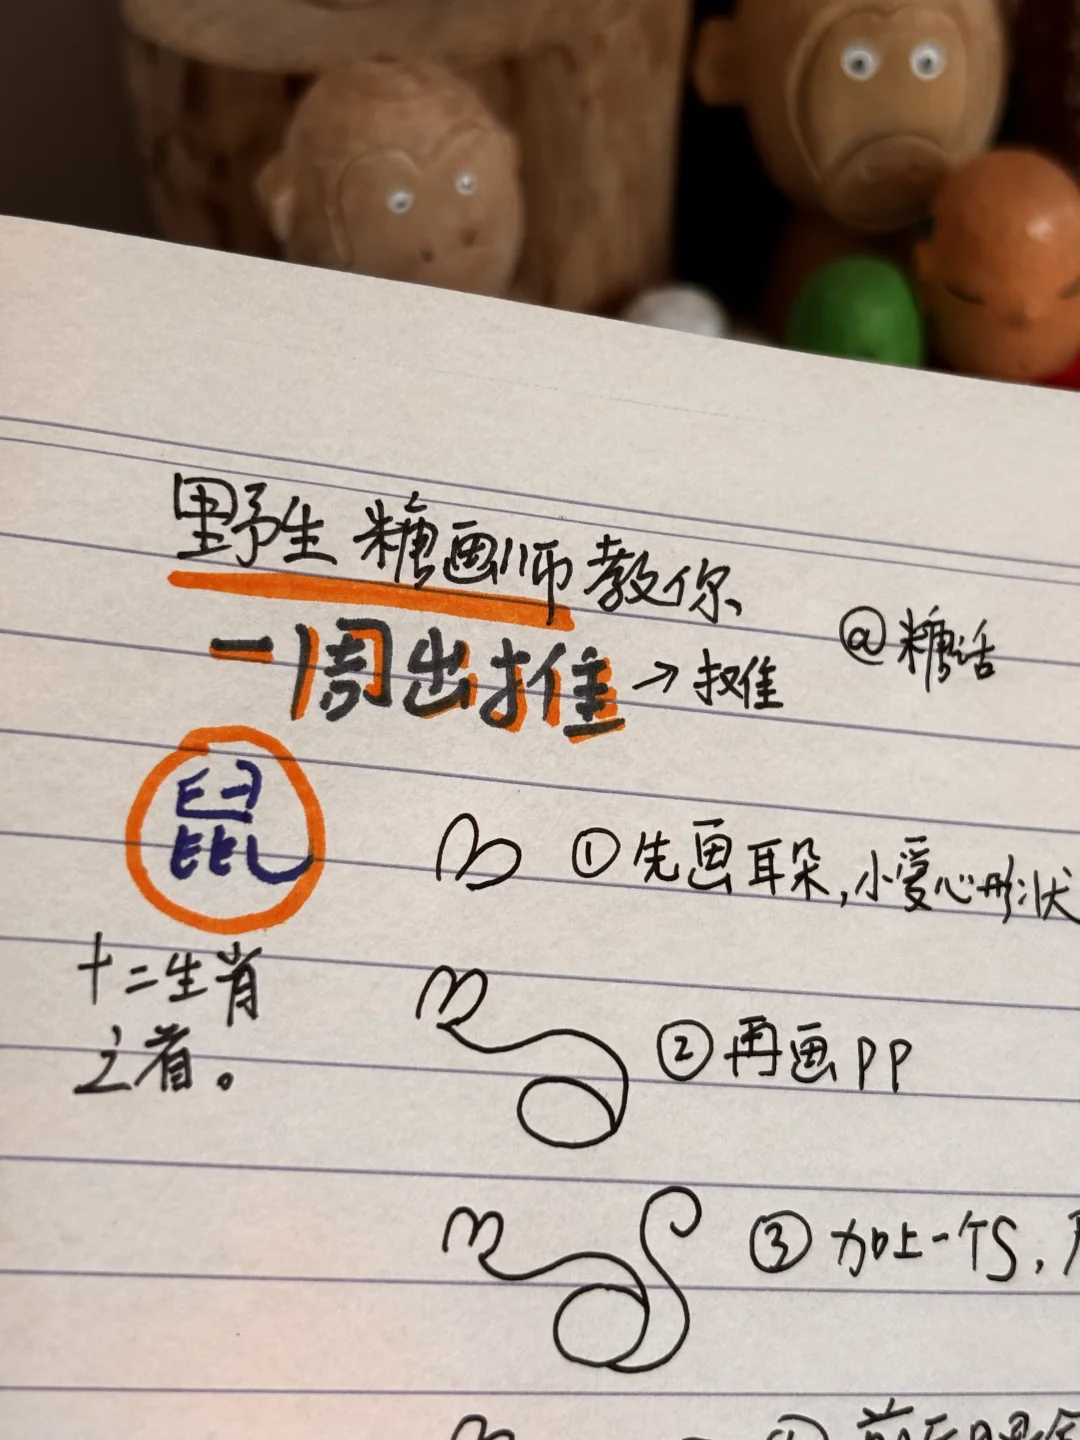 野生糖画师教你
@糖话
一周出摊→摊
鼠
十二生肖
之首。
①先画耳朵,小爱心形状
②再画PP
③加上一个S,